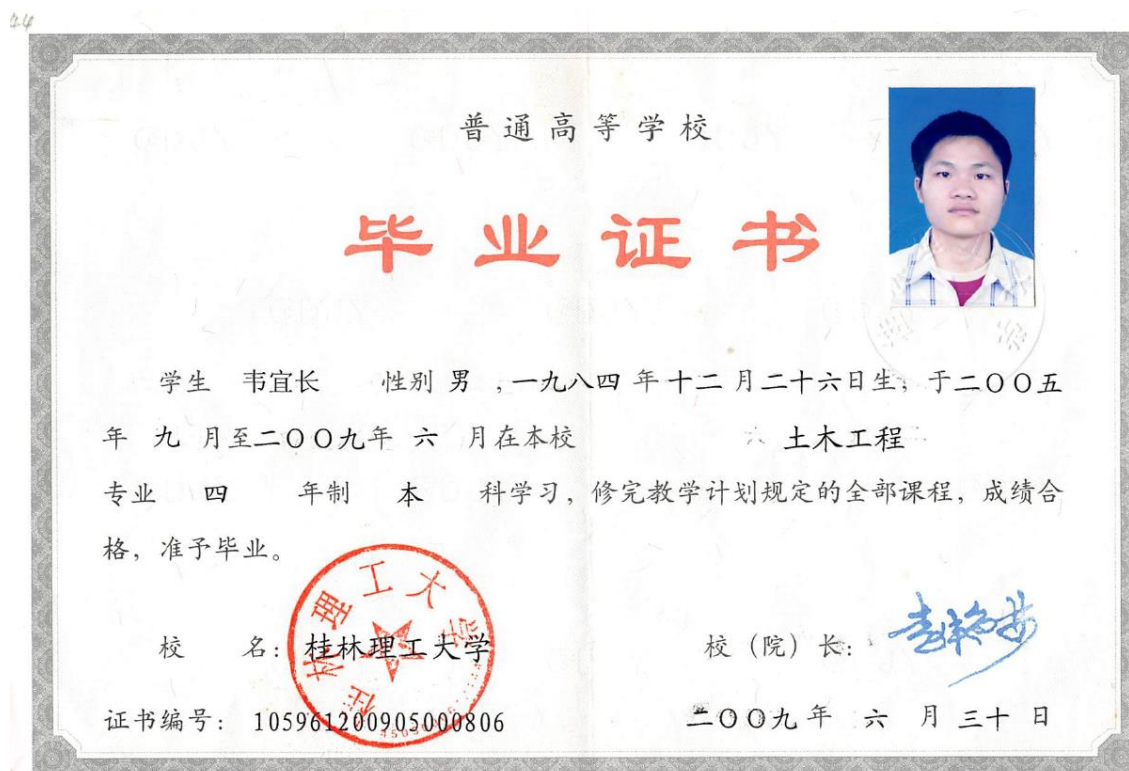 24
普通高等学校
毕业证书
学生 韦宜长 性别 男 ，一九八四 年 十二 月 二十六 日生，于二〇〇五
年 九 月至二〇〇九年 六 月在本校 土木工程
专业 四 年制 本 科学习，修完教学计划规定的全部课程，成绩合
格，准予毕业。
桂林理工大学
校 名：桂林理工大学 校（院）长：
证书编号：105961200905000806 二〇〇九 年 六 月 三十 日